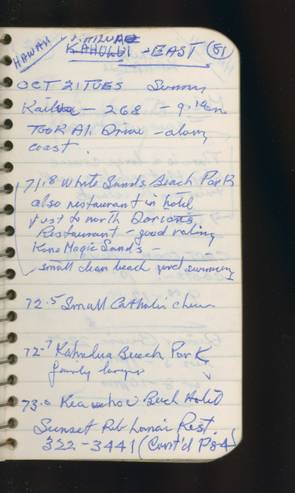 HAWAII KAILUA
KAHULUI - EAST 51
OCT 21 TUES Sunny
Kailua - 268 - 9:10 am
Took Ali Drive - along
coast.
71.8 White Sands Beach Park
also restaurant in hotel
just to north Dorians
Restaurant - good rating
Kona Magic Sands -
small clean beach good swimming
72.5 Small Catholic
72.7 Kahalua Beach Park
fairly large
73.0 Keauhou Beach Hotel
Sunset Rib Lanai Rest.
322-3441 (Cont'd P84)